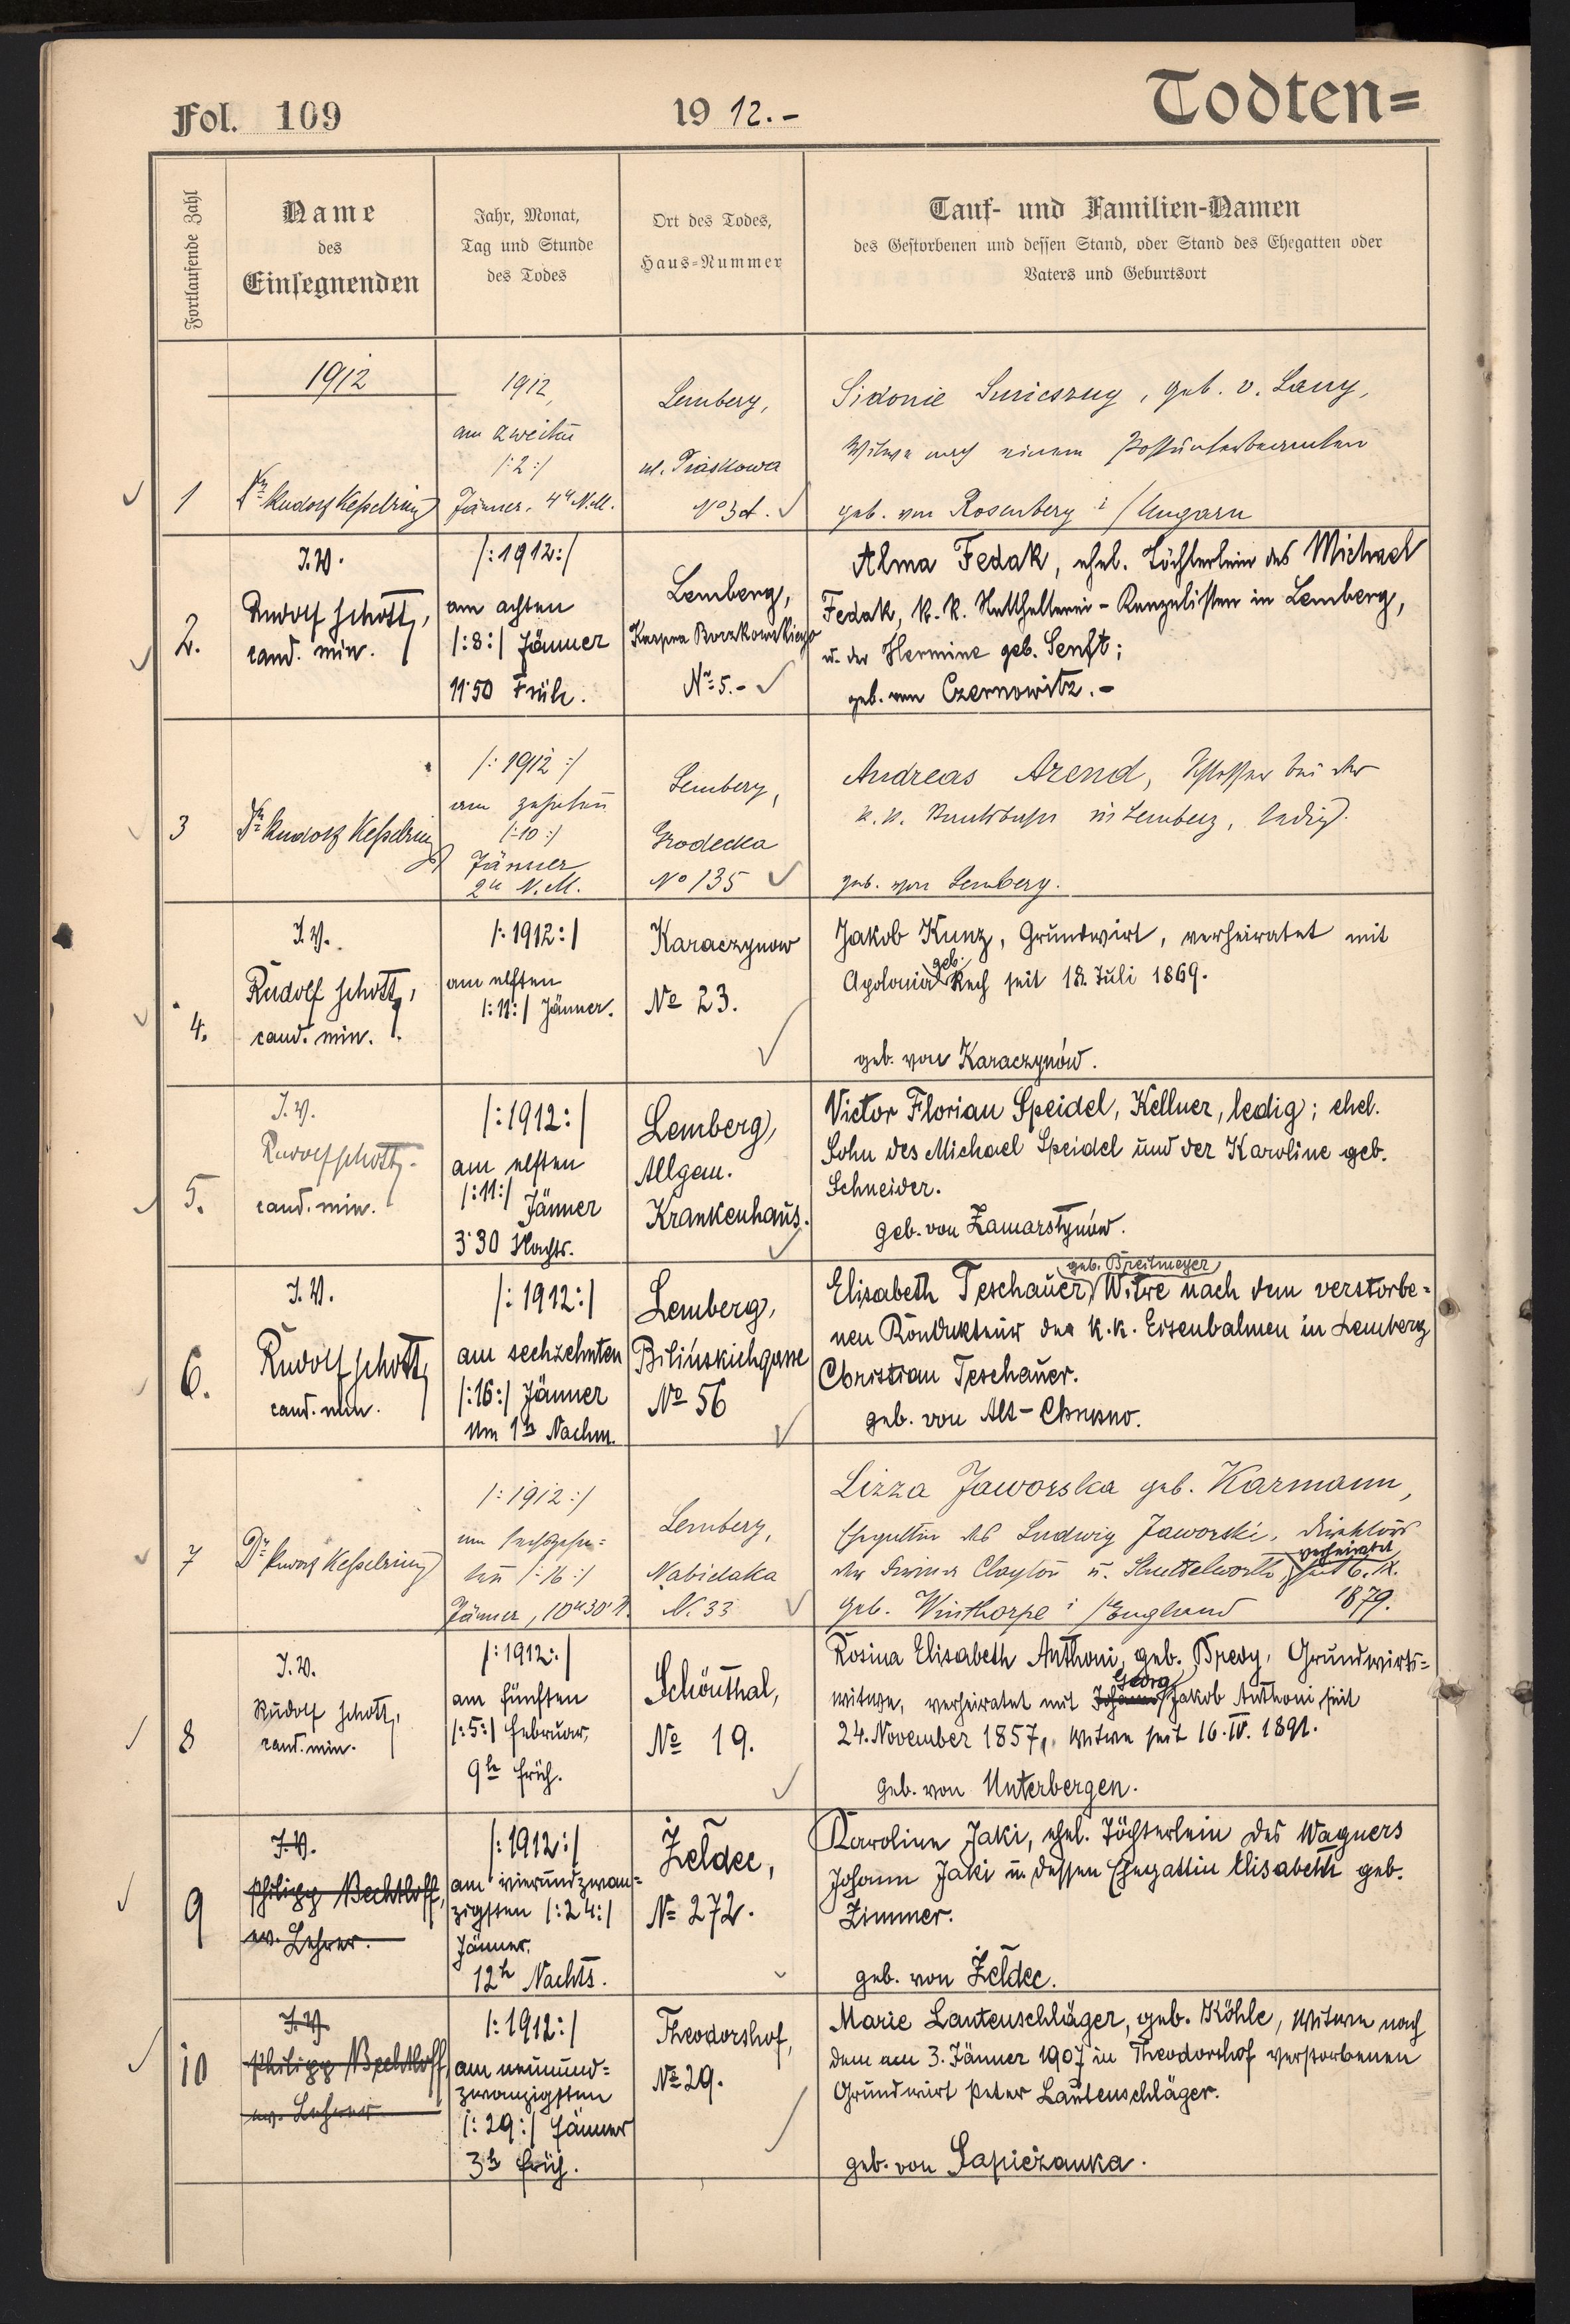 Fol. 109
19 12.-
Todten=
Fortlaufende Zahl
Name
des
Einsegnenden
Jahr, Monat,
Tag und Stunde
des Todes
Ort des Todes,
Haus-Nummer
Tauf- und Familien-Namen
des Gestorbenen und dessen Stand, oder Stand des Ehegatten oder
Vaters und Geburtsort
1912
1
Dr Rudolf Kesselring
1912,
am zweiten
/:2:/
Jänner, 4h N.M.
Lemberg,
ul. Piaskowa
No 3
Sidonie geb. v. Lany,
Witwe nach einem Postunterbeamten
geb. von Rosenberg i/Ungarn
2.
I.V.
Rudolf Schott,
cand. min.
/:1912:/
am achten
/:8:/ Jänner
11·50 Früh.
Lemberg,
Kaspra Boczkowskiego
No 5.-
Alma Fedak, ehel. Töchterlein des Michael
Fedak, k. k. Statthalterei-Kanzelisten in Lemberg,
u. der Hermine geb. Senft;
geb. von Czernowitz.-
3
Dr Rudolf Kesselring
/:1912:/
am zehnten
/:10:/
Jänner
2h N.M.
Lemberg,
Grodecka
No 135
Andreas Arend, Schlosser bei der
k. k. Staatsbahn in Lemberg, ledig.
geb. von Lemberg.
4.
I.V.
Rudolf Schott,
cand. min.
/:1912:/
am elften
/:11:/ Jänner.
Karaczynow
No 23.
Jakob Kunz, Grundwirt, verheiratet mit
geb.
Apolonia Rech seit 18. Juli 1869.
geb. von Karaczynów.
5.
I.V.
Rudolf Schott,
cand. min.
/:1912:/
am elften
/:11:/ Jänner
3·30 Nachts.
Lemberg,
Allgem.
Krankenhaus.
Victor Florian Speidel, Kellner, ledig; ehel.
Sohn des Michael Speidel und der Karoline geb.
Schneider.
geb. von Zamarstynów.
6.
I.V.
Rudolf Schott,
cand. min.
/:1912:/
am sechzehnten
/:16:/ Jänner
um 1h Nachm.
Lemberg,
Bilińskichgasse
No 56
geb. Breitmeyer
Elisabeth Teschauer, Witwe nach dem verstorbe-
nen Kondukteur der k.k. Eisenbahnen in Lemberg
Christian Teschauer.
geb. von Alt-Chrusno.
7
Dr Rudolf Kesselring
/:1912:/
am sechzehn=
ten /:16:/
Jänner, 10h30'
Lemberg,
Nabielaka
N. 33
Lizza Jaworska geb. Karmann,
Ehegattin des Ludwig Jaworski, Direktors
verheiratet
der Firma Clayton u. Shuttelworth, seit 6. IX.
geb. Winthorpe i/England 1879.
8
I.V.
Rudolf Schott,
cand. min.
/:1912:/
am fünften
/:5:/ Februar,
9h früh.
Schönthal,
No 19.
Rosina Elisabeth Anthoni, geb. Bredy, Grundwirts=
Georg
witwe, verheiratet mit Johann Jakob Anthoni seit
24. November 1857, Witwe seit 16. IV. 1891.
geb. von Unterbergen.
9
I.V.
Philipp Bechtloff,
ev. Lehrer.
/:1912:/
am vierundzwan=
zigsten /:24:/
Jänner,
12h Nachts.
Żeldec,
No 272.
Karoline Jaki, ehel. Töchterlein des Wagners
Johann Jaki u. dessen Ehegattin Elisabeth geb.
Zimmer.
geb. von Żeldec.
10
I.V.
Philipp Bechtloff,
ev. Lehrer
/:1912:/
am neunund=
zwanzigsten
/:29:/ Jänner
3h früh.
Theodorshof,
No 29.
Marie Lautenschläger, geb. Köhle, Witwe nach
dem am 3. Jänner 1907 in Theodorshof verstorbenen
Grundwirt Peter Lautenschläger.
geb. von Sapieżanka.